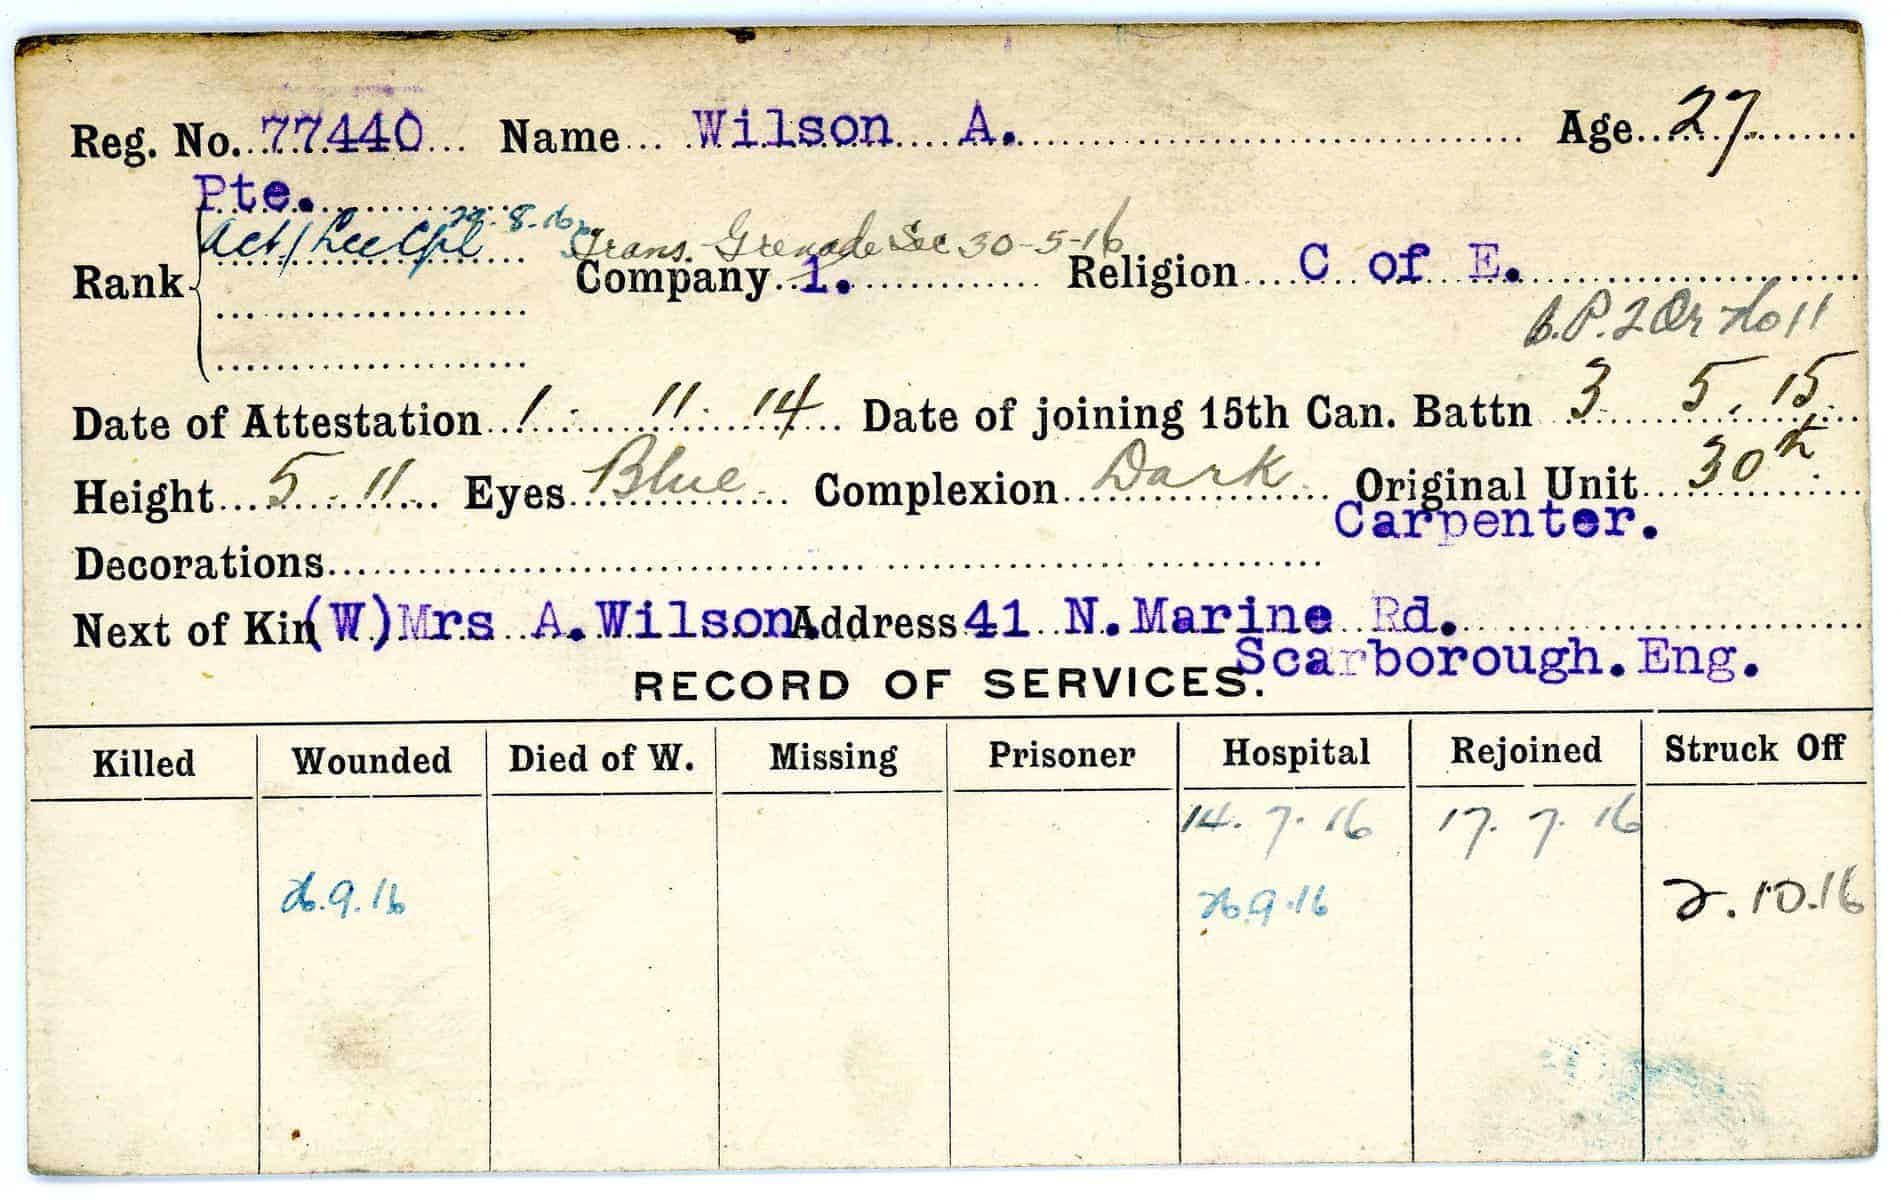 Reg. No. 77440 Name Wilson A. Age 27
Pte.
Act/Lce Cpl 29-8-16 Trans. Grenade Sec 30-5-16
Rank Company 1. Religion C of E.
B.P. 2 Or No 11
Date of Attestation 1. 11. 14 Date of joining 15th Can. Battn 3 5. 15.
Height 5.11. Eyes Blue Complexion Dark Original Unit 30th
Carpenter.
Decorations
Next of Kin (W) Mrs A. Wilson. Address 41 N. Marine Rd.
Scarborough. Eng.
RECORD OF SERVICES.
Killed Wounded Died of W. Missing Prisoner Hospital Rejoined Struck Off
14. 7. 16 17. 7. 16
26.9.16 26.9.16 2.10.16